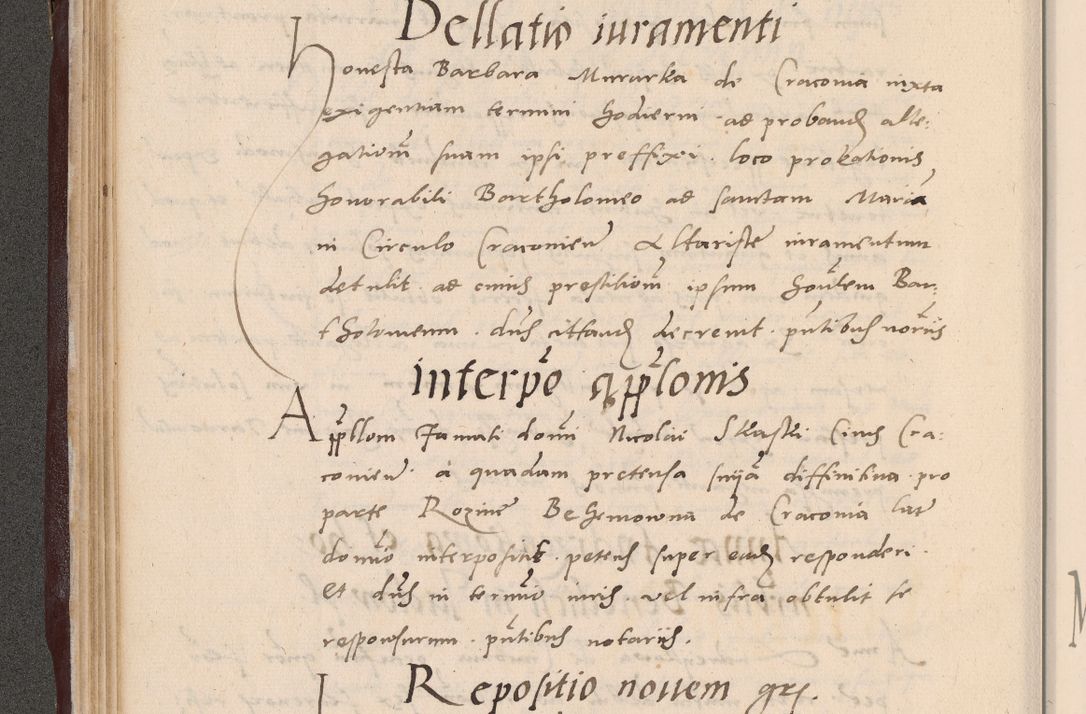 Dellatio iuramenti
Honesta Barbara Murarka de Cracovia iuxta
exigentiam termini hodierni ad proband alle:
gationū suam ipsi preffixi. loco probationis
honorabili Bartholomeo ad sanctam Mariā
in Circulo Cracovien Altariste iuramentum
detulit. ad cuius prestitionē ipsum hōntem Bar:
tholomeum. dns cittand decrevit. pntibus notariis
interpō appllonis
Appllom Famati domī Nicolai Skaski Civis Cra:
covien. a quadam pretensa sniā diffinitiva. pro
parte Rozine Behemowna de Cracovia lat
domīo interposit. petens super ead responderi.
Et dns in termīo iuris. vel infra obtulit se
responsurum. pntibus notariis.
Repositio novem grs.